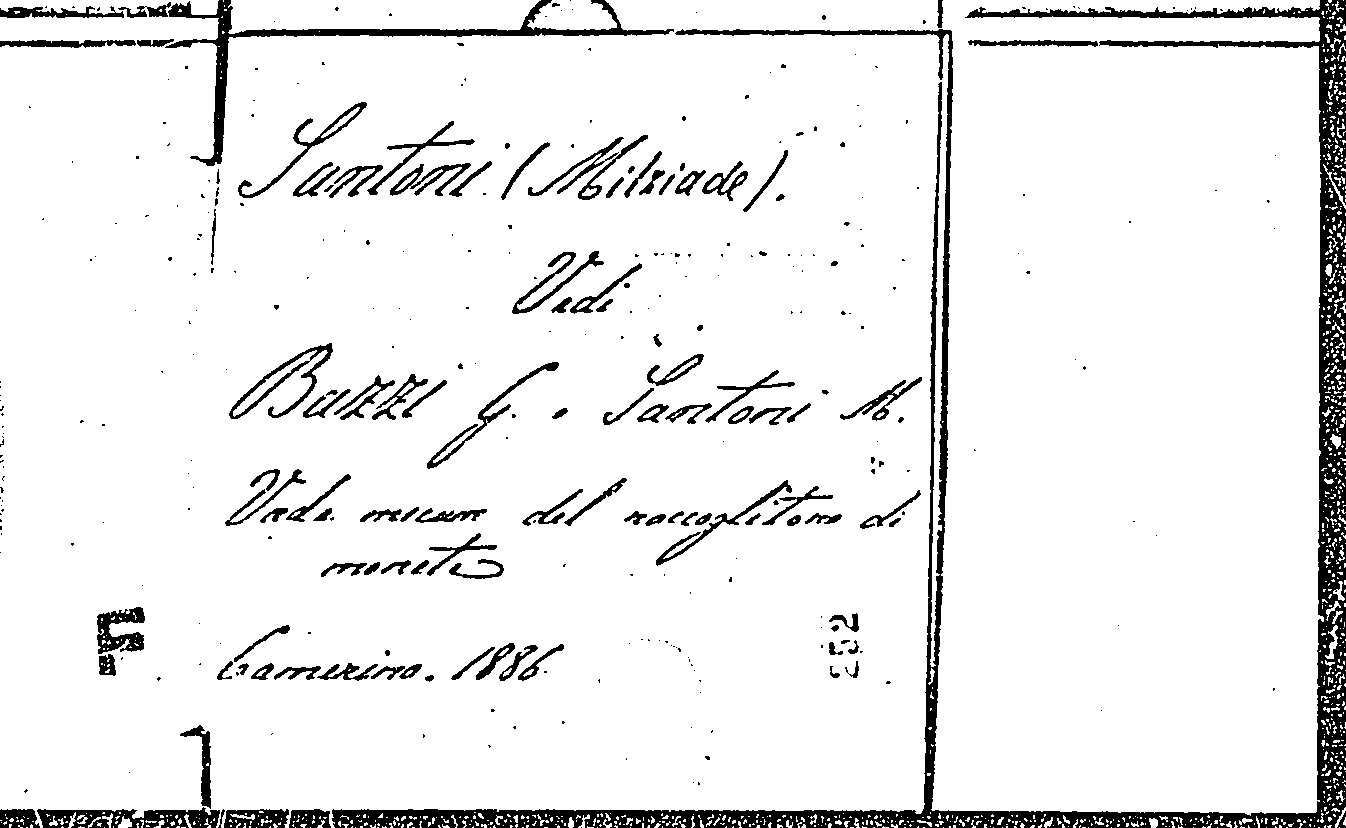 Santoni (Milziade).
Vedi
Bazzi G. e Santoni M.
Vade mecum del raccoglitore di
monete
Camerino. 1886
252